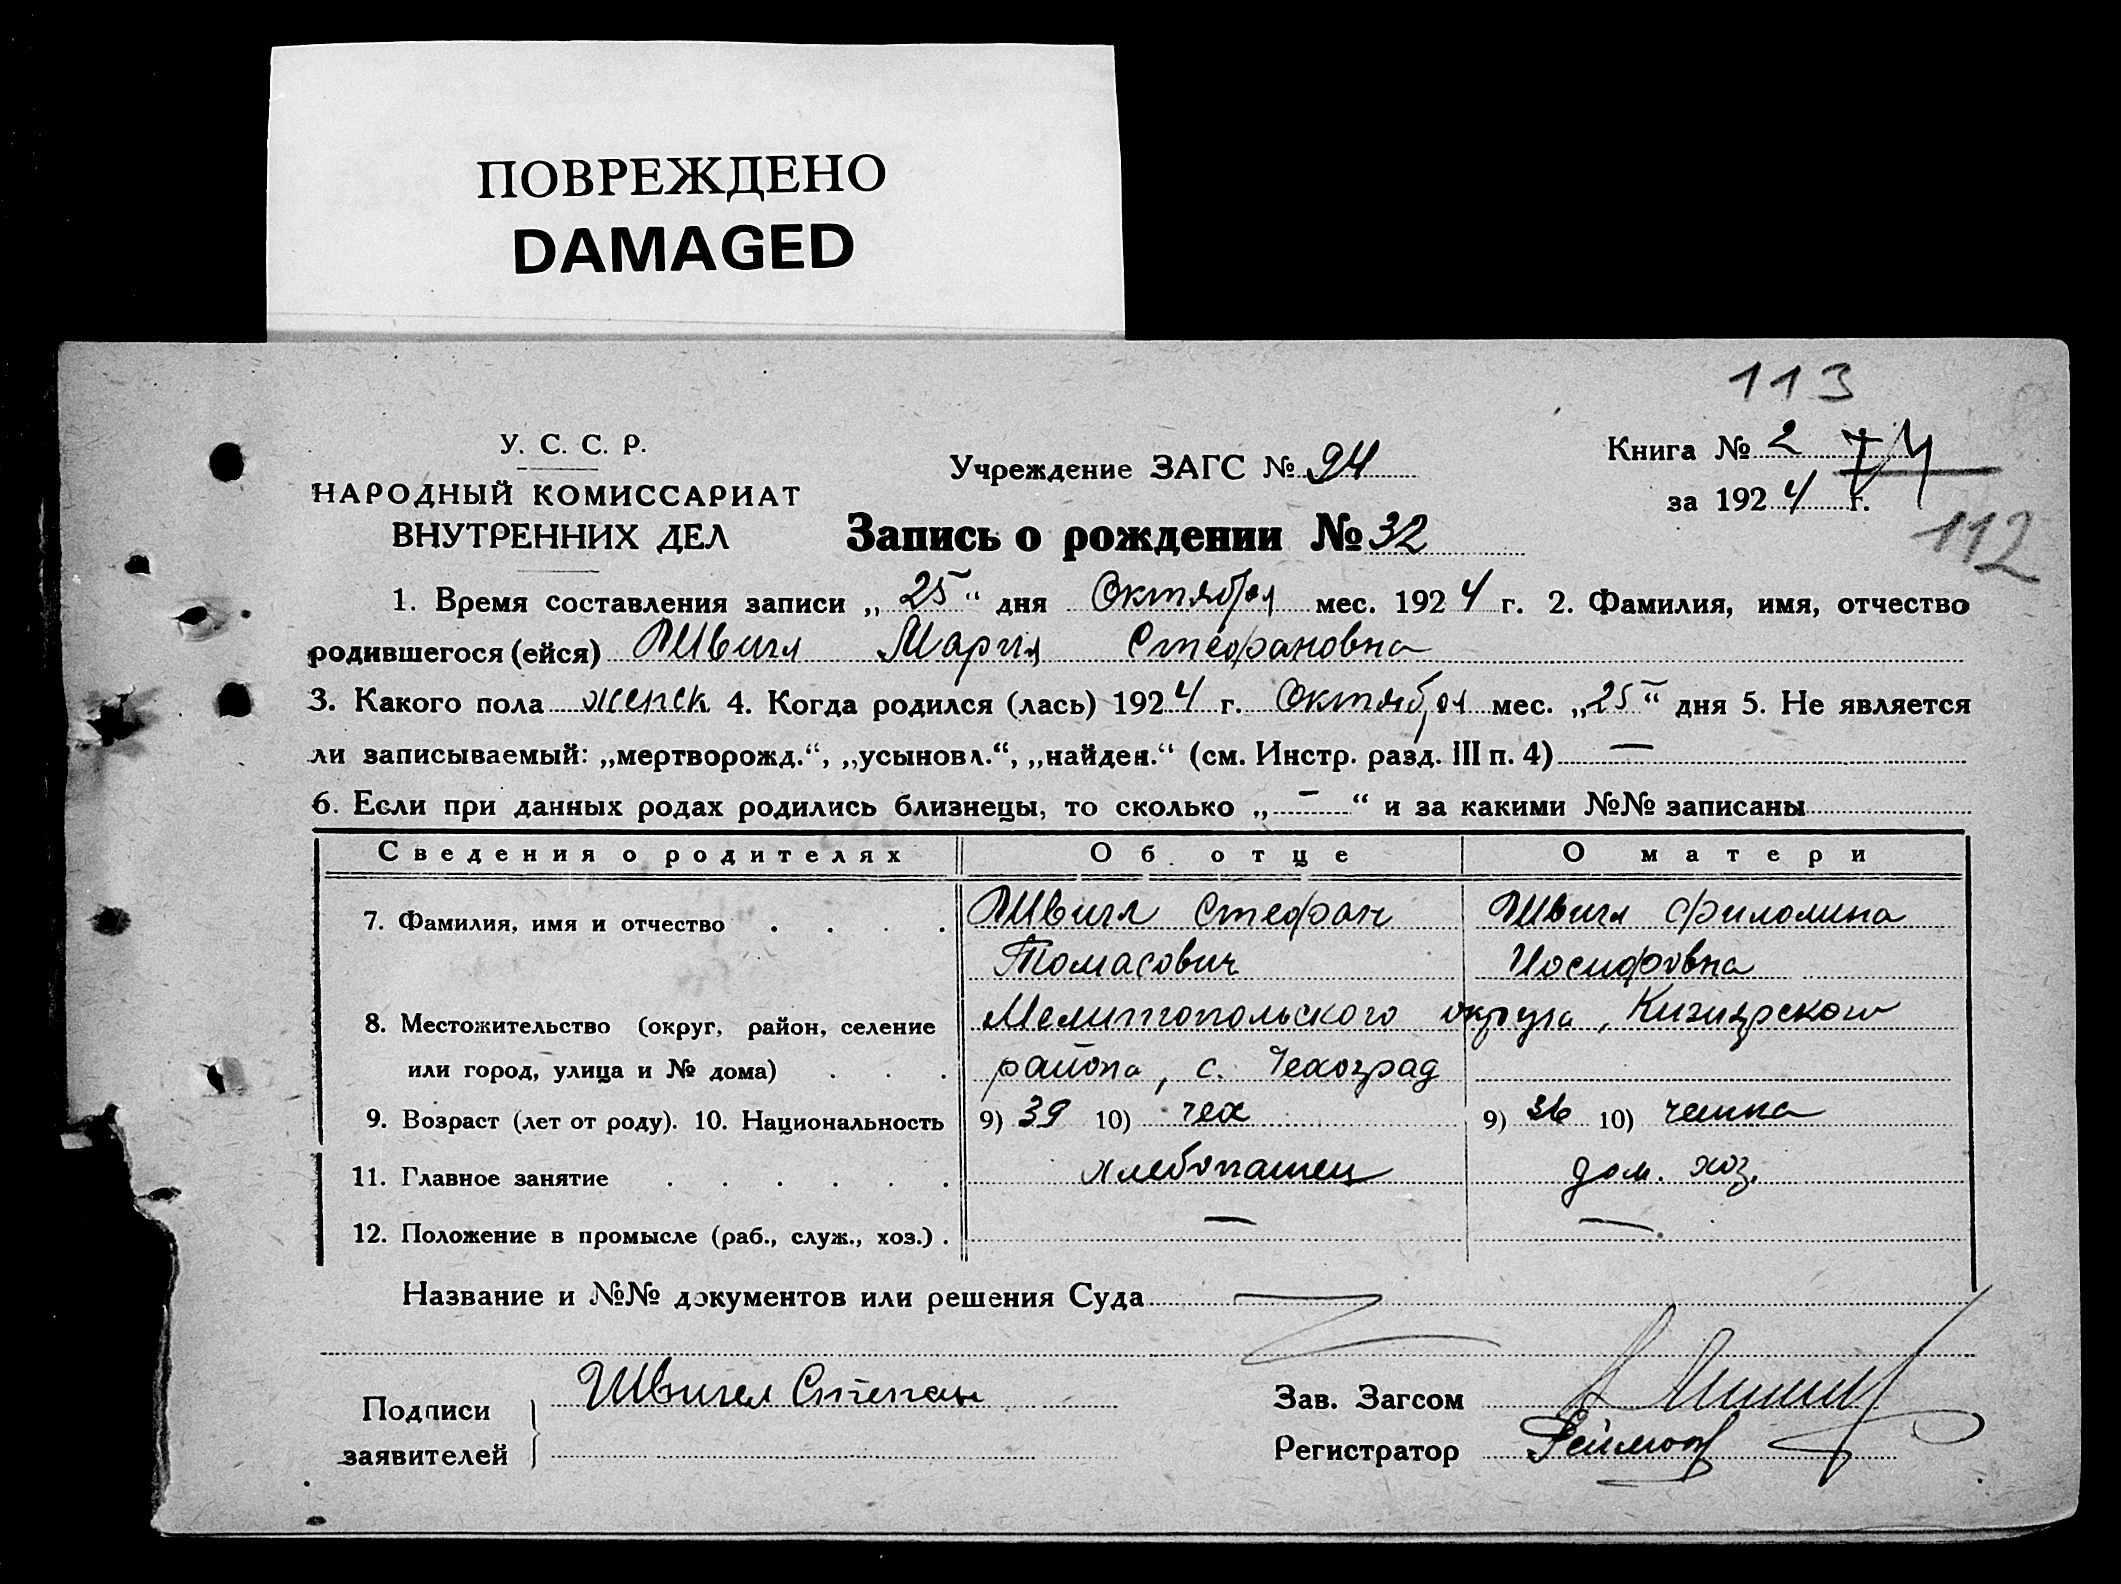 ПОВРЕЖДЕНО
DAMAGED
113
У. С. С. Р.
НАРОДНЫЙ КОМИССАРИАТ
ВНУТРЕННИХ ДЕЛ
Учреждение ЗАГС № 94
Книга № 2 74
за 1924 г.
112
Запись о рождении № 32
1. Время составления записи „ 25 “ дня Октября мес. 1924 г. 2. Фамилия, имя, отчество
родившегося (ейся) Швигл Мария Стефановна
3. Какого пола женск 4. Когда родился (лась) 1924 г. Октября мес. „25“ дня 5. Не является
ли записываемый: „мертворожд.“, „усыновл.“, „найден.“ (см. Инстр. разд. III п. 4) —
6. Если при данных родах родились близнецы, то сколько „ – “ и за какими №№ записаны
Сведения о родителях Об отце О матери
7. Фамилия, имя и отчество . . . . Швигл Стефан Швигл Филомина
Томасович Иосифовна
8. Местожительство (округ, район, селение Мелитопольского округа, Кизиярского
или город, улица и № дома) . . . района, с. Чехоград
9. Возраст (лет от роду). 10. Национальность 9) 39 10) чех 9) 36 10) чешка
11. Главное занятие . . . . . . хлебопашец дом. хоз.
12. Положение в промысле (раб., служ., хоз.) . — —
Название и №№ документов или решения Суда
Подписи
заявителей
Швигел Степан
Зав. Загсом
Регистратор